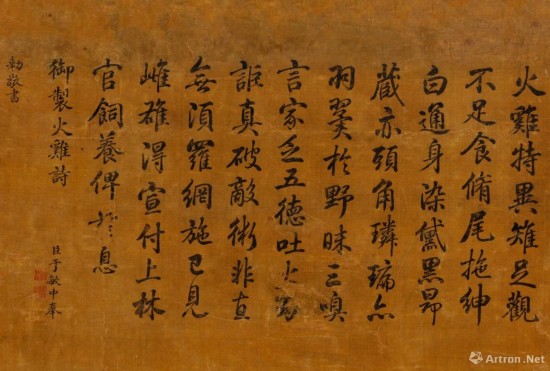 火雞特異雉足觀
不足食脩尾拖紳
白通身染黛黑昂
藏亦頭角璘亦
羽翼於野昧三嗅
言家乏五德吐火
詎真破敵術非直
無須羅網施已見
雌雄得宣付上林
官飼養俾息
御製火雞詩
臣于敏中奉
勅敬書
Artron.Net